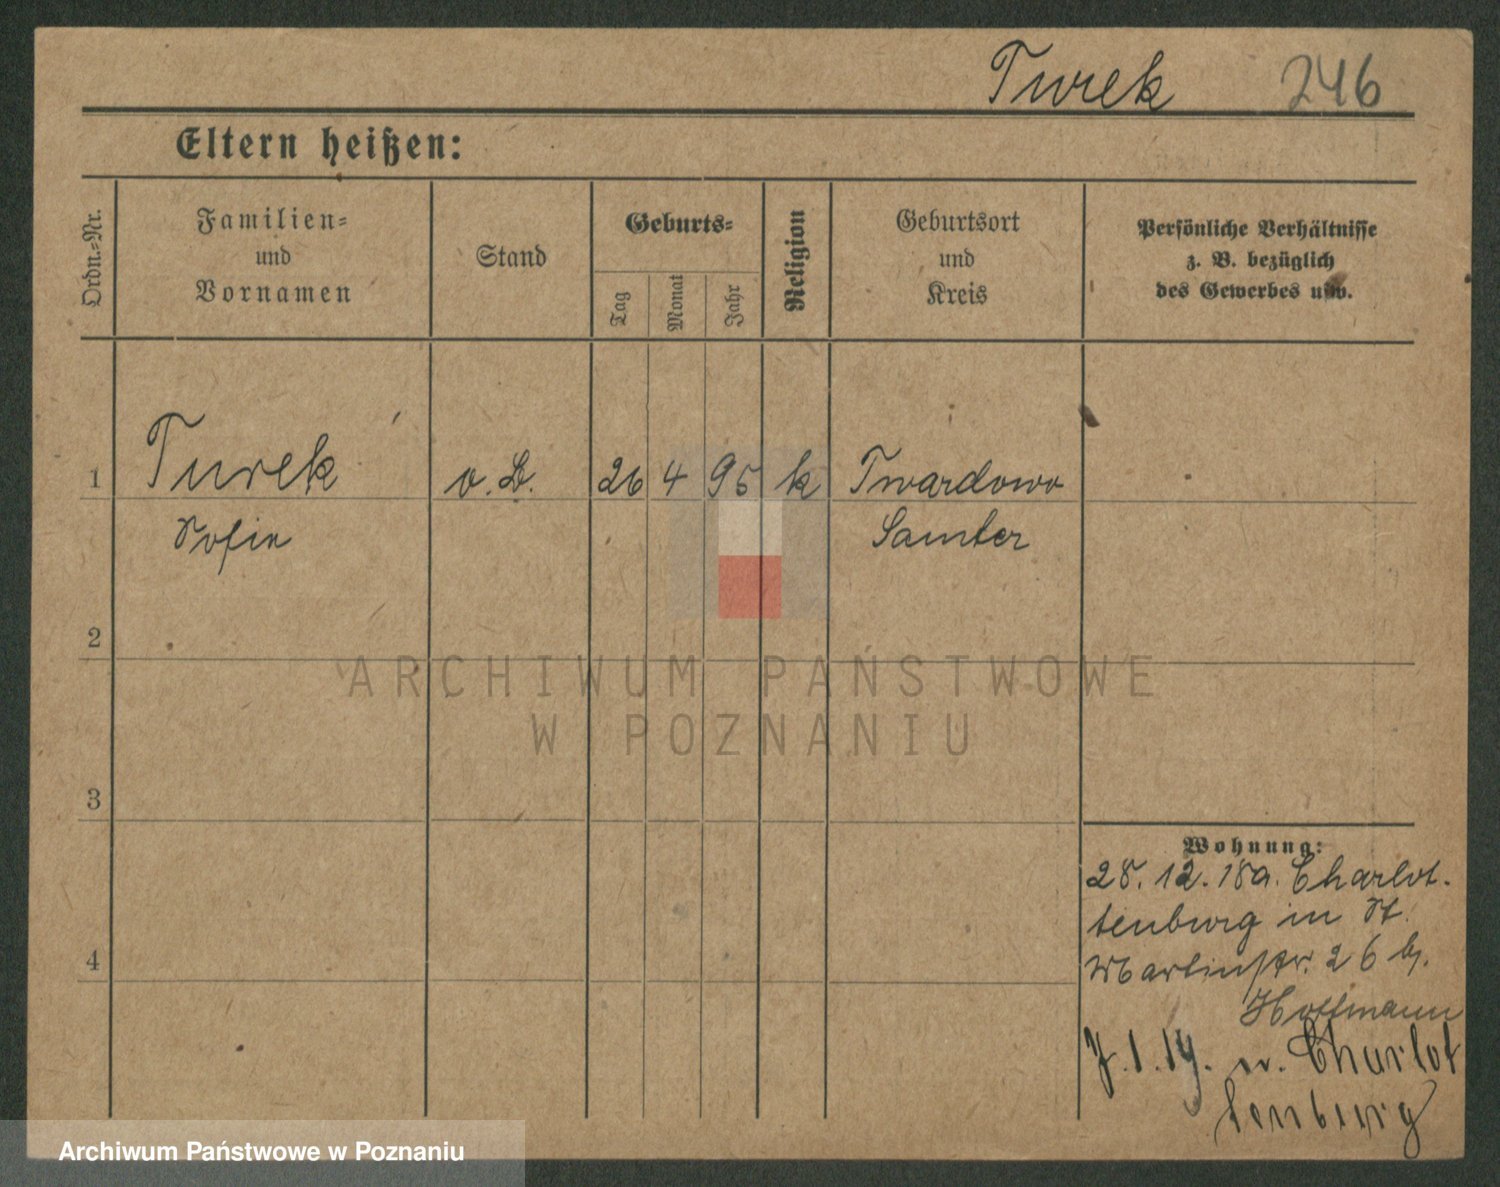 Turek 246
Eltern heißen:
Ordn.=Nr.
Familien=
und
Vornamen
Stand
Geburts=
Tag
Monat
Jahr
Religion
Geburtsort
und
Kreis
Persönliche Verhältnisse
z. B. bezüglich
des Gewerbes usw.
1 Turek o. B. 26 4 95 k Twardowo
Sofie Samter
2
3
4
ARCHIWUM PAŃSTWOWE
W POZNANIU
Wohnung:
28. 12. 18 a. Charlot-
tenburg in St.
Martinstr. 26 bj.
Hoffmann
7. 1. 19. n. Charlot
tenburg
Archiwum Państwowe w Poznaniu